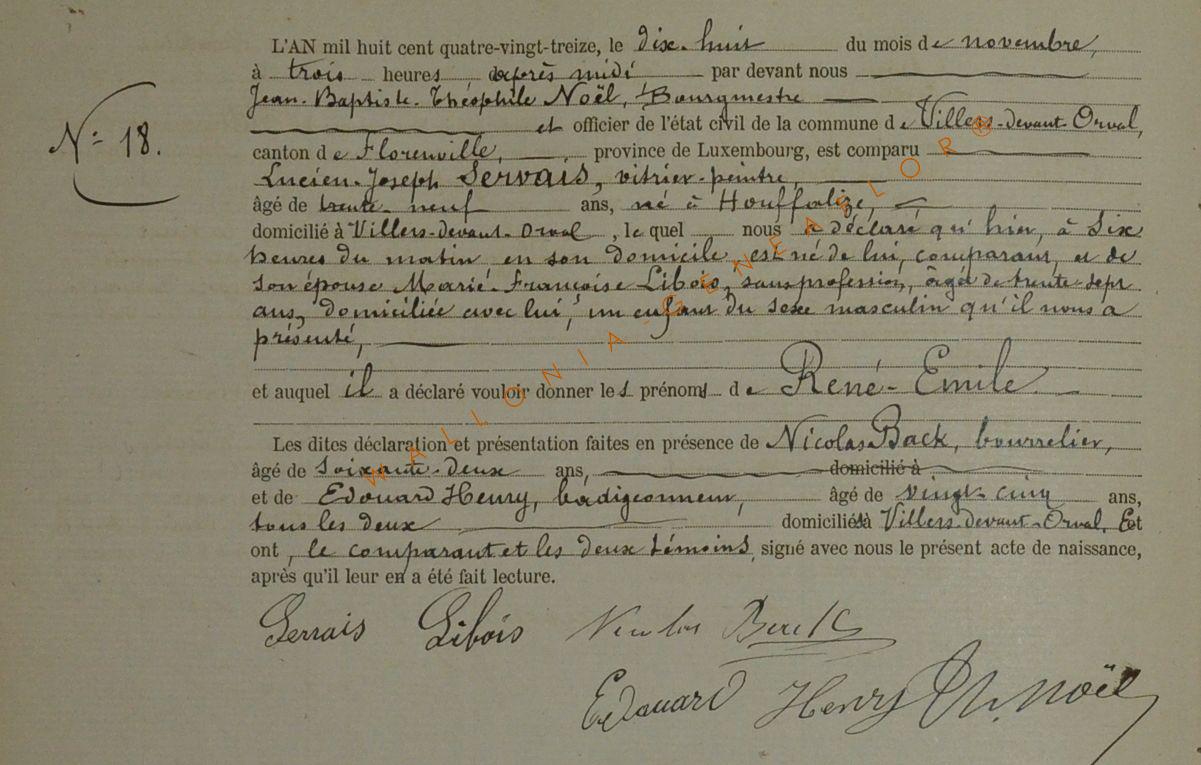 L'AN mil huit cent quatre-vingt-treize, le dix-huit du mois de novembre,
à trois heures après midi par devant nous
Jean-Baptiste-Théophile Noël, Bourgmestre
et officier de l'état civil de la commune de Villers-devant-Orval,
N° 18.
canton de Florenville, province de Luxembourg, est comparu
Lucien-Joseph Servais, vitrier-peintre,
âgé de trente-neuf ans, né à Houffalize,
domicilié à Villers-devant-Orval, lequel nous a déclaré qu'hier, à six
heures du matin en son domicile est né de lui, comparant, et de
son épouse Marie-Françoise Libois, sans profession, âgée de trente-sept
ans, domiciliée avec lui, un enfant du sexe masculin qu'il nous a
présenté,
et auquel il a déclaré vouloir donner les prénoms de René-Emile
Les dites déclaration et présentation faites en présence de Nicolas Back, bourrelier,
âgé de soixante-deux ans, domicilié à
et de Edouard Henry, badigeonneur, âgé de vingt-cinq ans,
tous les deux domiciliés à Villers-devant-Orval. Et
ont, le comparant et les deux témoins, signé avec nous le présent acte de naissance,
après qu'il leur en a été fait lecture.
Servais Libois Nicolas Back
Edouard Henry Th. Noël
WALLONIA-GENEAELOR®